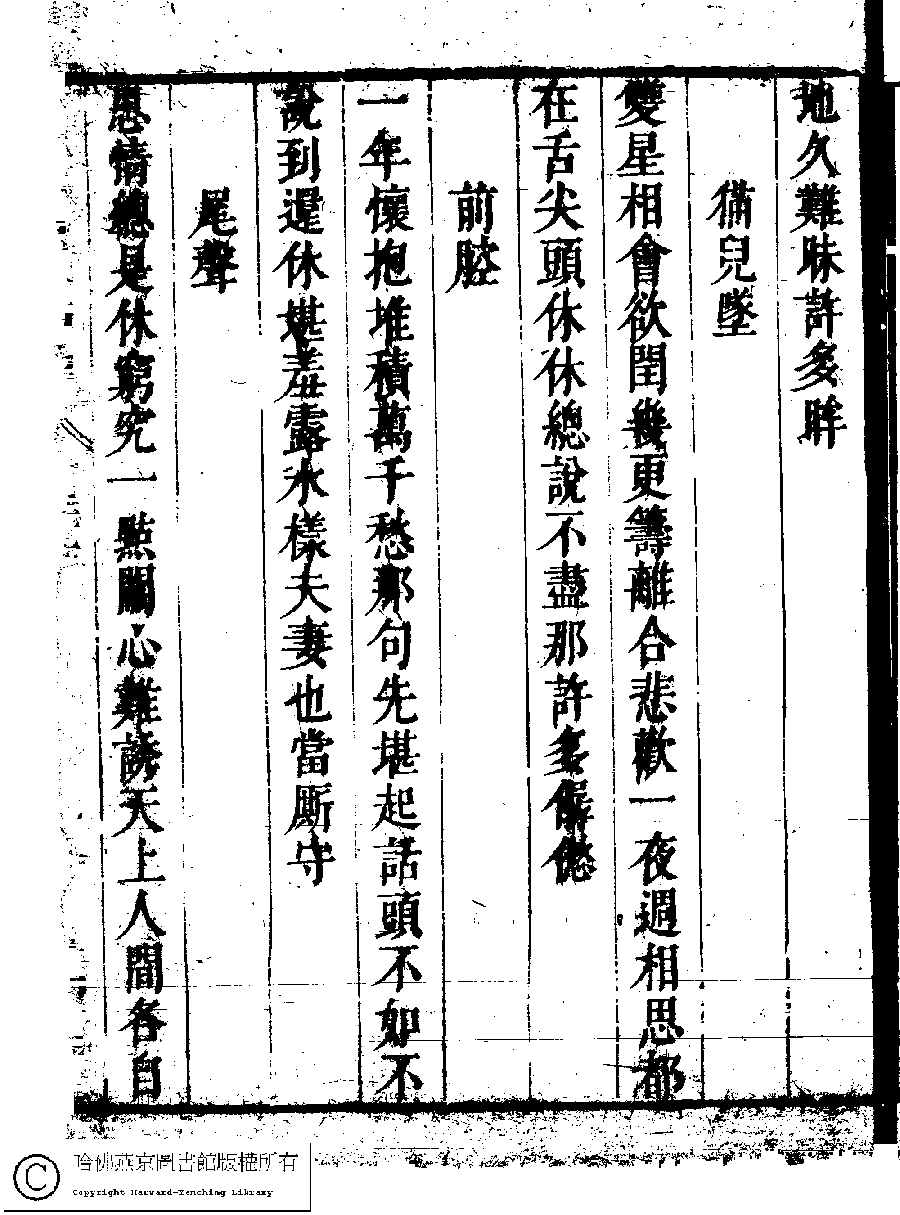 地久難昧許多眸
猫兒墜
雙星相會欲閏幾更籌離合悲歡一夜週相思都
在舌尖頭休休總說不盡那許多僝僽
前腔
一年懷抱堆積萬千愁那句先堪起話頭不如不
說到還休堪羞露水樣夫妻也當厮守
尾聲
恩情總是休窮究一點關心難誘天上人間各自
哈佛燕京圖書館版權所有
Copyright Harvard-Yenching Library